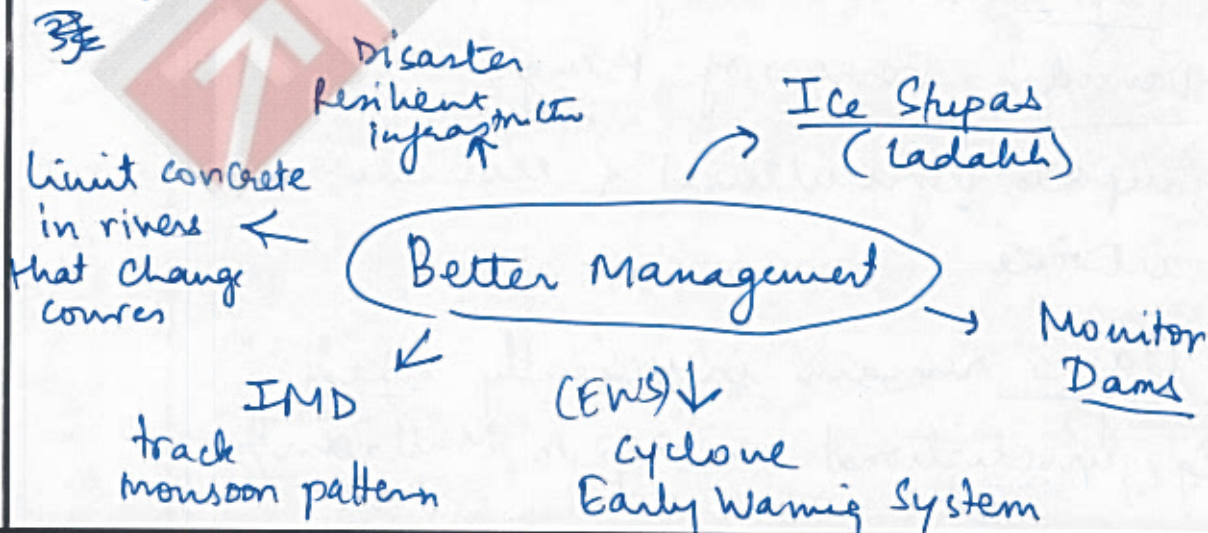 Disaster
Resilient
infrastructure
Ice Stupas
(Ladakh)
Limit concrete
in rivers
that change
courses
Better Management
Monitor
Dams
IMD
track
monsoon pattern
(EWS)
Cyclone
Early Warnig System